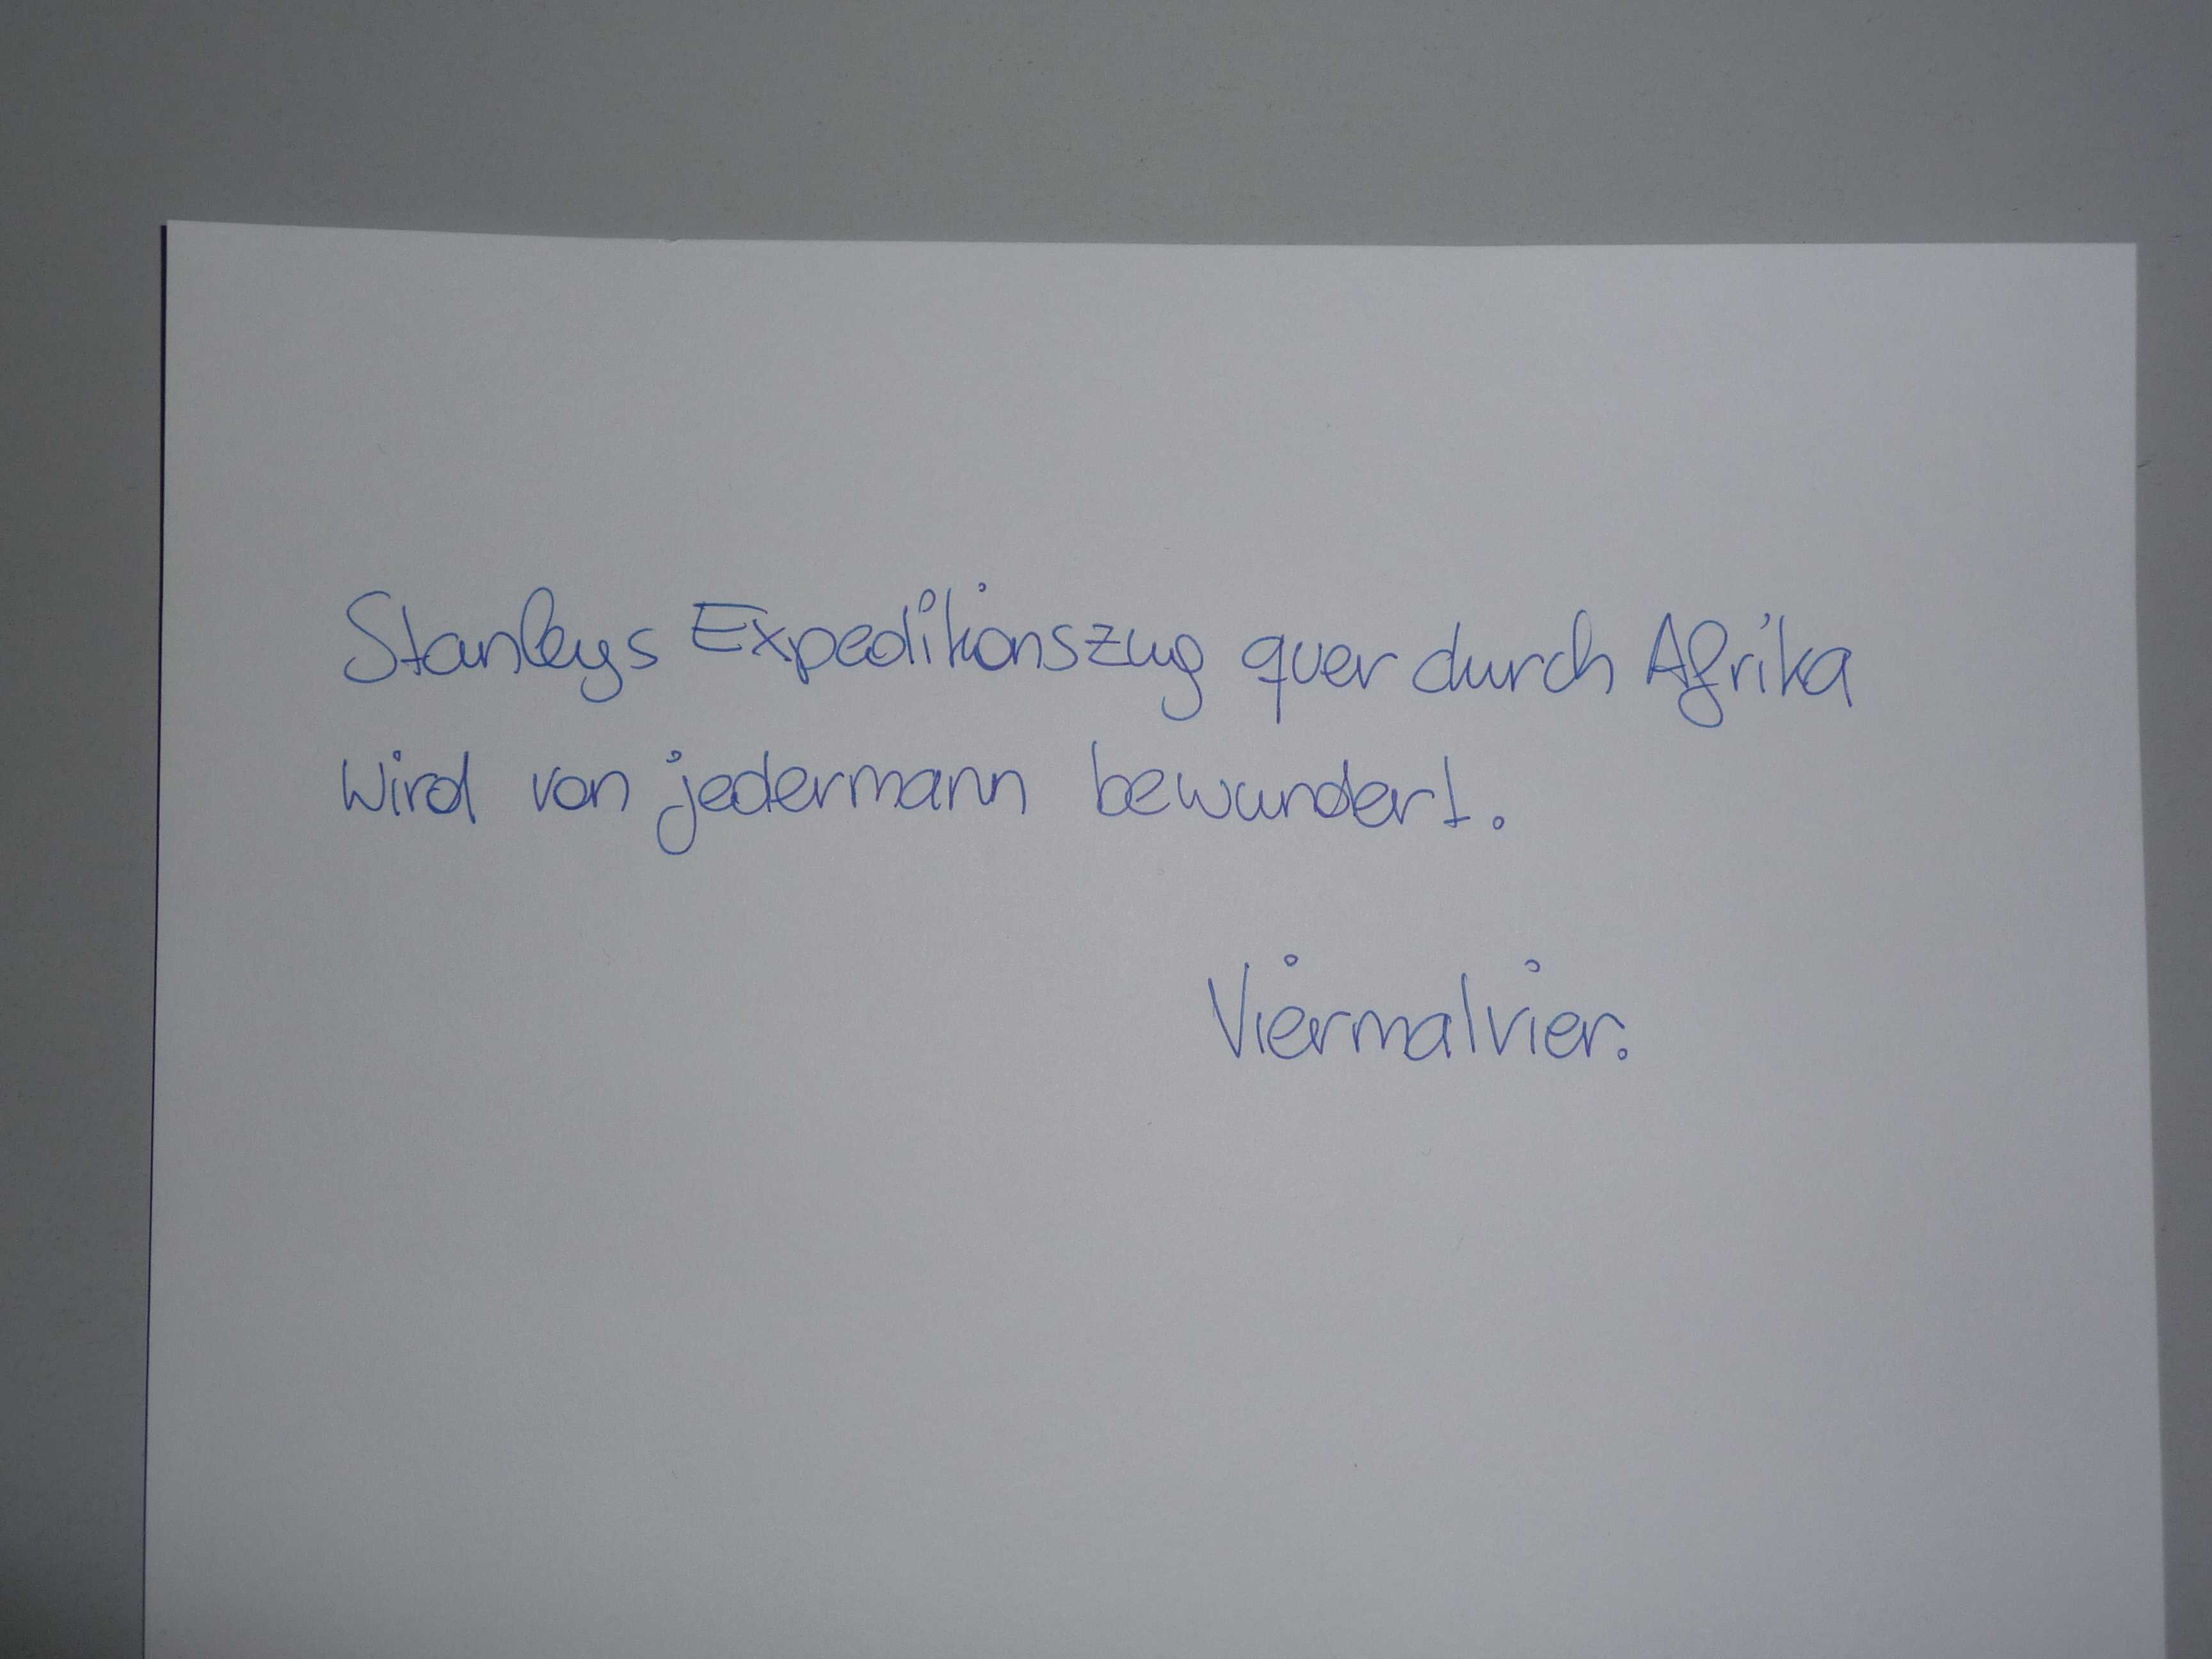 Stanleys Expeditionszug quer durch Afrika
wird von jedermann bewundert.
Viermalvier.